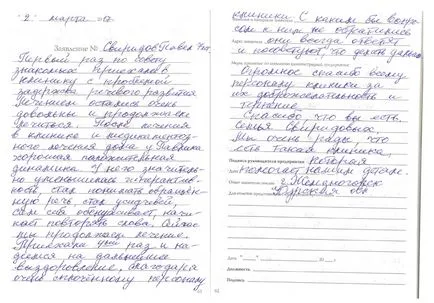 "2" марта
Заявление № Свиридов Павел
Первый раз по совету
знакомых приехали в
клинику с проблемой
задержка речевого развития
Лечением остались очень
довольны и продолжаем
лечиться. После лечения
в клинике и медикаментоз-
ного лечения дома у Павлика
хорошая положительная
динамика. У него значитель-
но уменьшилась гиперактив-
ность, стал понимать обращён-
ную речь, стал усидчивей,
сам себя обслуживает, начи-
нает повторять слова. Сейчас
мы продолжаем лечение.
Приехали раз и на-
деемся на дальнейшее
выздоровление, благодаря
очень сплочённому персоналу
клиники. С каким бы вопро-
сом к ним не обратились
они всегда ответят
и посоветуют, что делать дальше
Огромное спасибо всему
персоналу клиники за
их доброжелательность и
терпение.
Спасибо, что вы есть.
Семья Свиридовых.
Мы очень рады, что
есть такая клиника,
Подпись руководителя предприятия
которая
помогает нашим детям.
г. Железногорск
Курская обл
Дата
Должность
Подпись